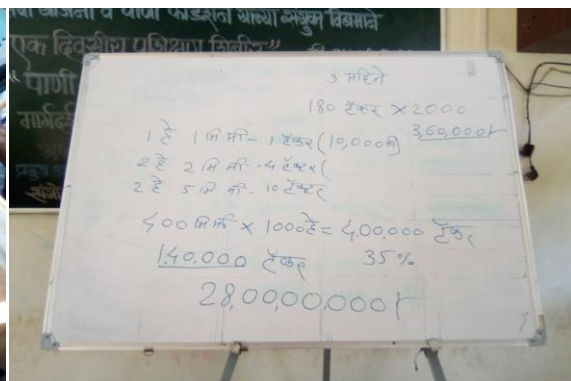 व पाणी फाउंडेशन यांच्या संयुक्त विद्यमाने
एक दिवसीय प्रशिक्षण शिबीर"
"पाणी
3 महिने
180 टँकर × 2000
3,60,000/-
1 हे 1 मि मी - 1 टँकर (10,000ली)
2 हे 2 मि मी - 4 टँकर (
2 हे 5 मि मी - 10 टँकर (
400 मि मी × 1000 हे = 4,00,000 टँकर
1,40,000 टँकर 35%
28,00,00,000/-